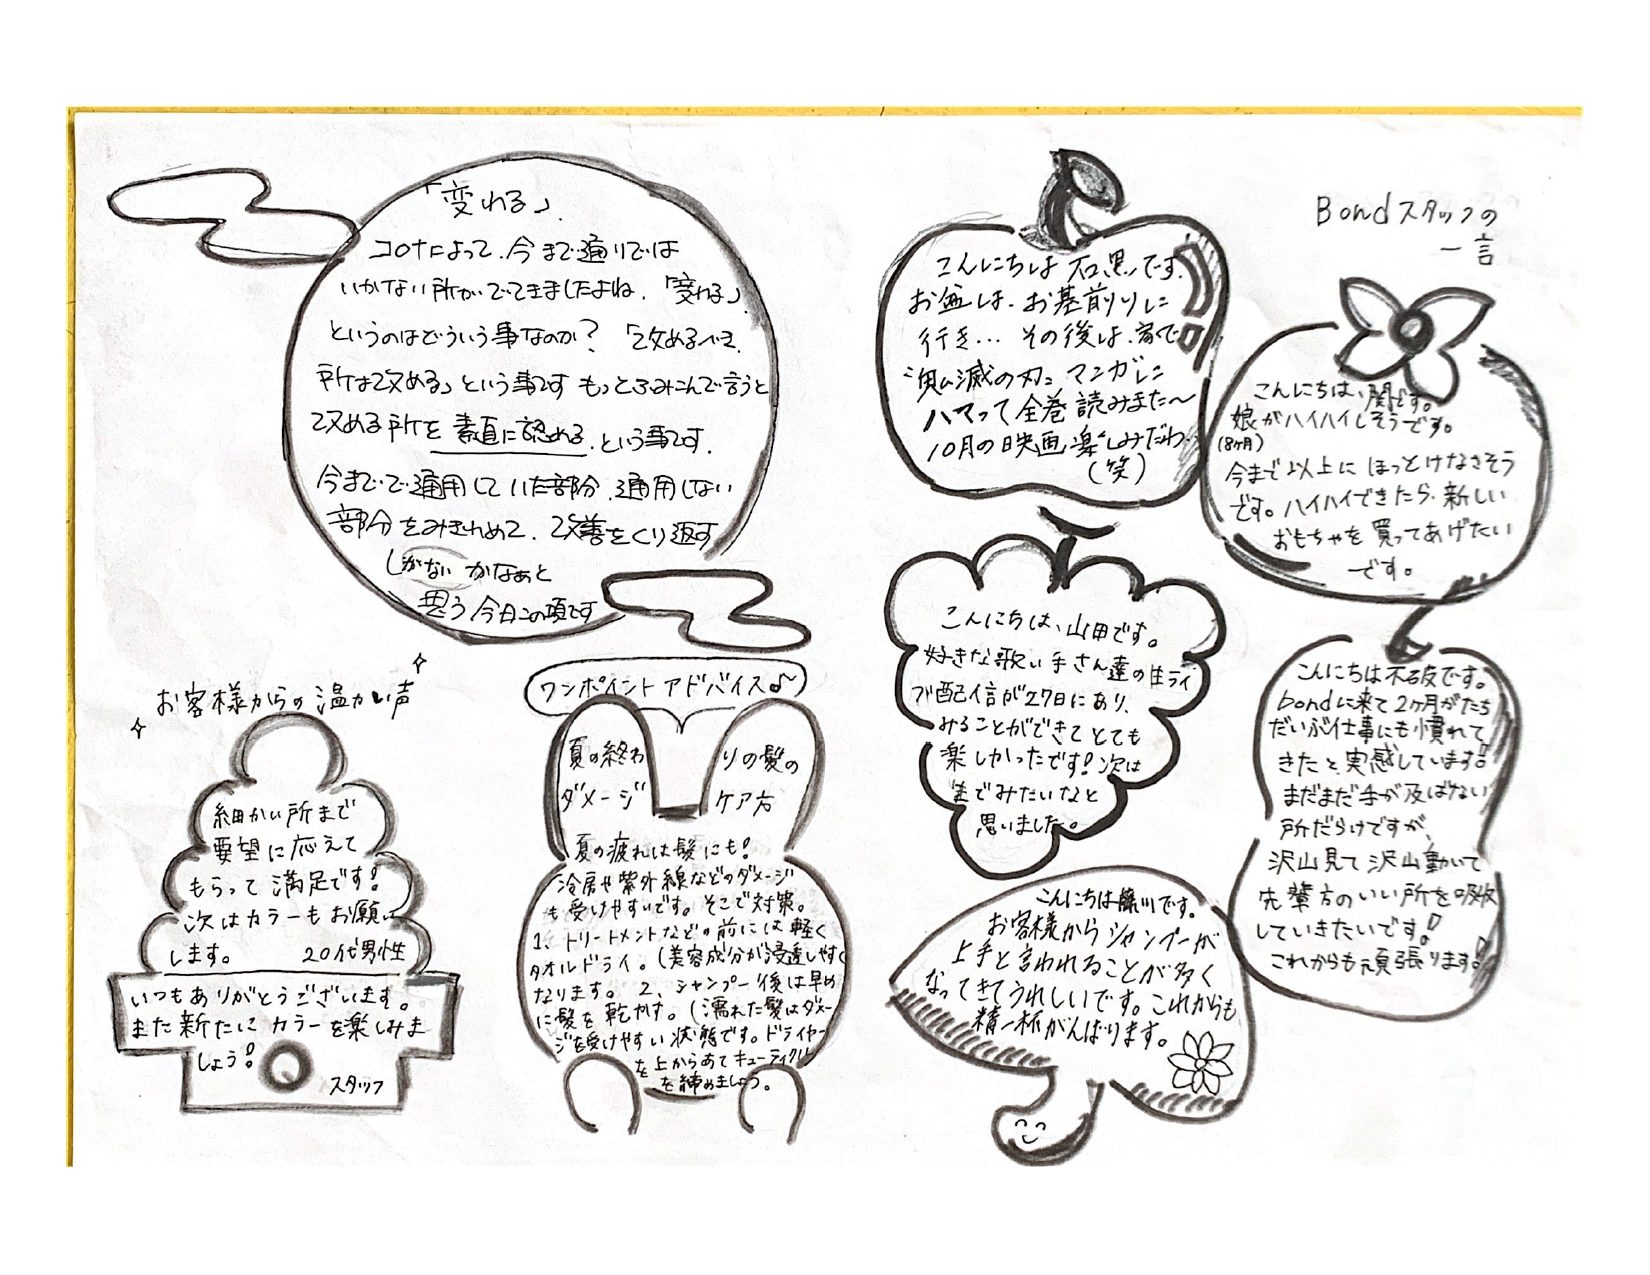 「変われる」
コロナによって、今まで通りでは
いかない所がでてきましたよね、「変われる」
というのはどういう事なのか？「改めるべき
所は改める」という事です もっとふみこんで言うと
改める所を 素直に認める、という事です。
今までで通用していた部分、通用しない
部分をみきわめて、改善をくり返す
しかない かなぁと
思う 今日この頃です
お客様からの温かい声
細かい所まで
要望に応えて
もらって満足です!
次はカラーもお願い
します。 20代男性
いつもありがとうございます。
また新たに カラーを楽しみま
しょう!
スタッフ
ワンポイントアドバイス♪
夏の終わりの髪の
ダメージケア方
夏の疲れは髪にも!
冷房や紫外線などのダメージ
も受けやすいです。そこで対策。
1、トリートメントなどの前には軽く
タオルドライ。(美容成分が浸透しやすく
なります。 2、シャンプー後は早め
に髪を乾かす。(濡れた髪はダメー
ジを受けやすい状態です。ドライヤー
を上からあてキューティクル
を締めましょう。
Bondスタッフの
一言
こんにちは 石黒です。
お盆は、お墓前りに
行き… その後は、家で
"鬼滅の刃" マンガに
ハマって全巻読みまた〜
10月の映画楽しみだわ
(笑)
こんにちは、関です。
娘がハイハイしそうです。
(8ヶ月)
今まで以上にほっとけなさそう
です。ハイハイできたら、新しい
おもちゃを買ってあげたい
です。
こんにちは、山田です。
好きな歌い手さん達の生ライ
ブ配信が27日にあり、
みることができてとても
楽しかったです!次は
生でみたいなと
思いました。
こんにちは不破です。
bondに来て2ヶ月がたち
だいぶ仕事にも慣れて
きたと実感しています!
まだまだ手が及ばない
所だらけですが、
沢山見て沢山動いて
先輩方のいい所を吸収
していきたいです!
これからも頑張ります!
こんにちは藤川です。
お客様からシャンプーが
上手と言われることが多く
なってきてうれしいです。これからも
精一杯がんばります。